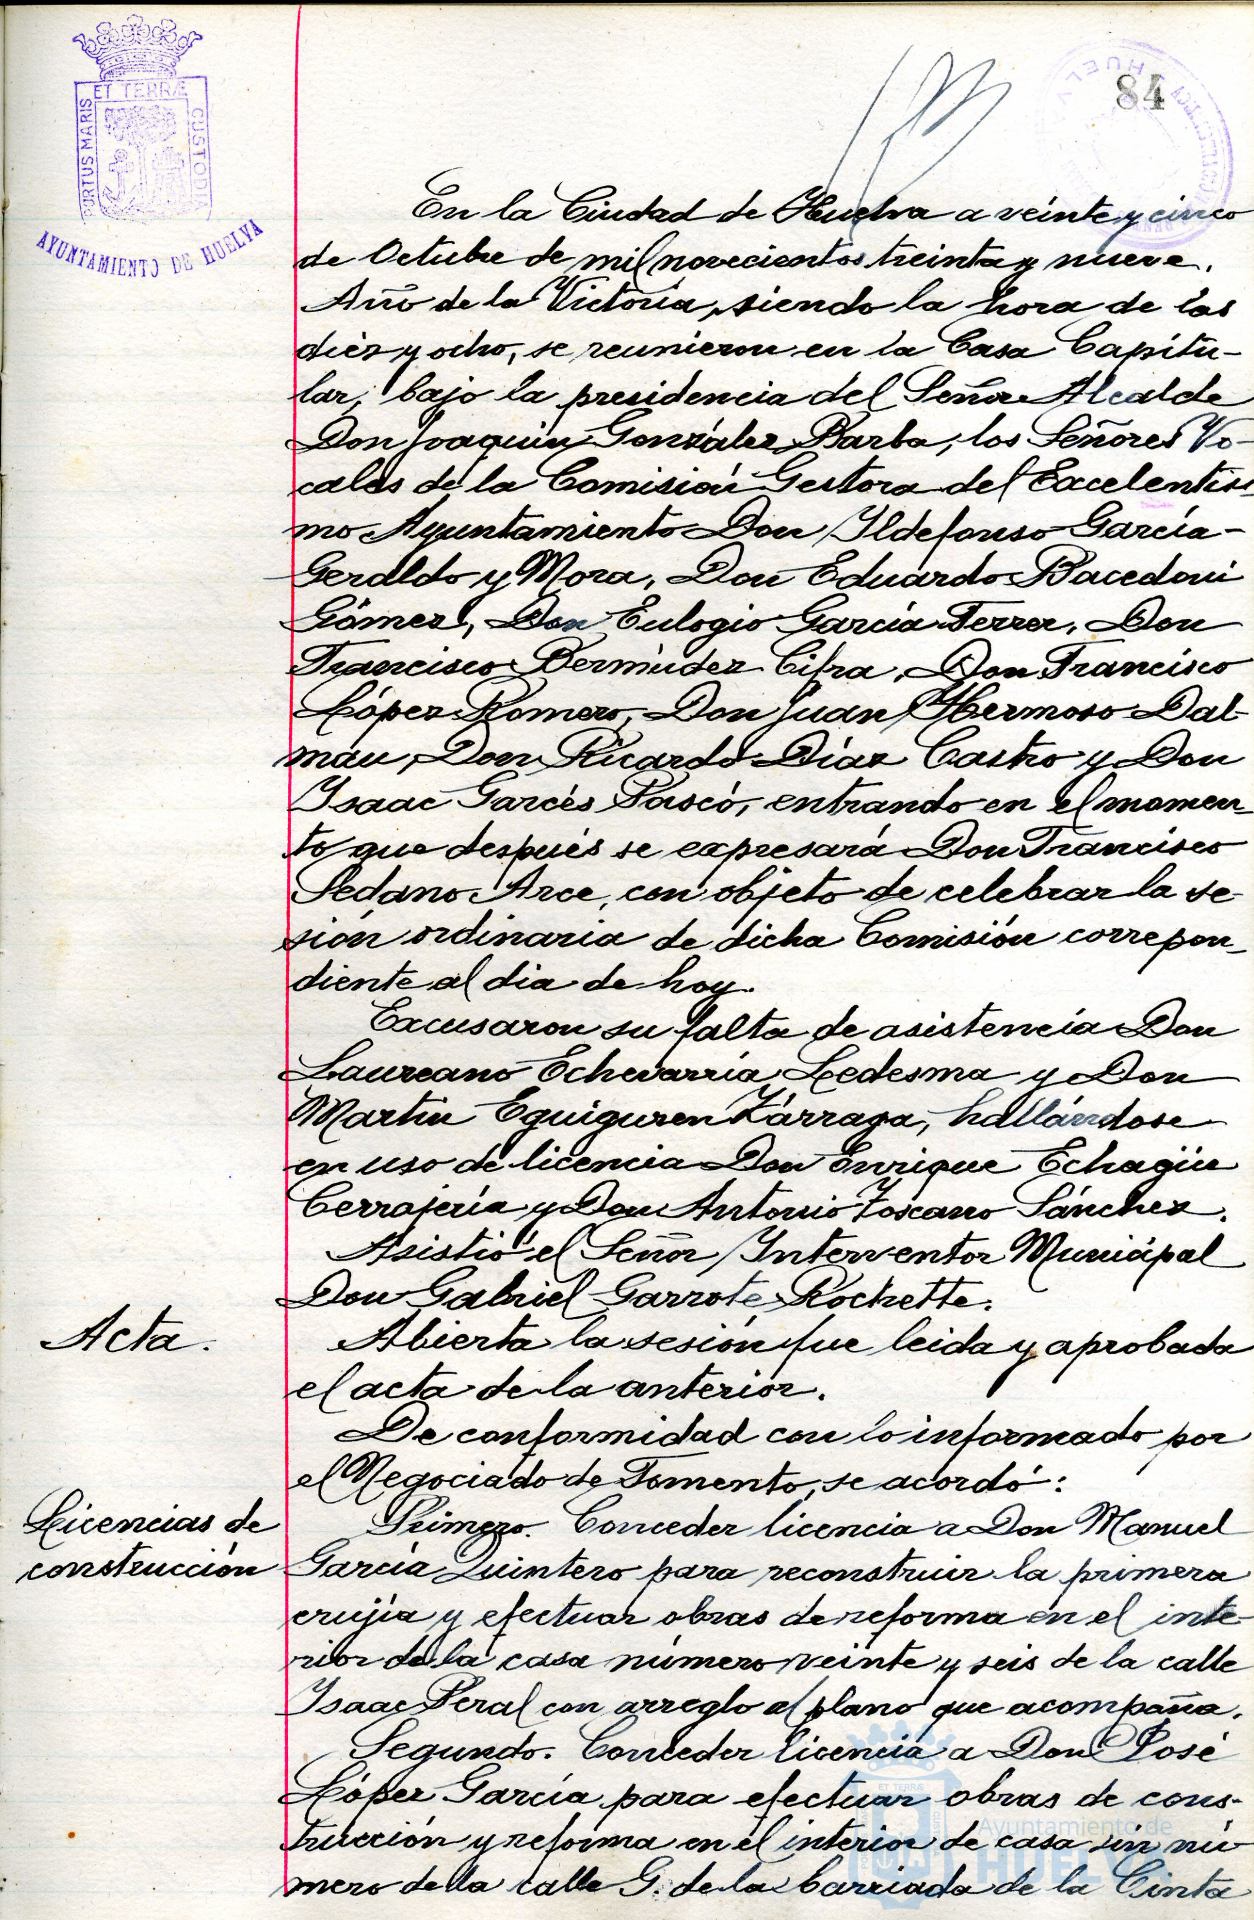 ET TERRÆ
PORTUS MARIS
CUSTODIA
AYUNTAMIENTO DE HUELVA
84
En la Ciudad de Huelva a veinte y cinco
de Octubre de mil novecientos treinta y nueve,
Año de la Victoria, siendo la hora de las
diez y ocho, se reunieron en la Casa Capitu-
lar, bajo la presidencia del Señor Alcalde
Don Joaquin González Barba, los Señores Vo-
cales de la Comisión Gestora del Excelentísi-
mo Ayuntamiento Don Ildefonso García-
Geraldo y Mora, Don Eduardo Bacedoni
Gómez, Don Eulogio García Ferrer, Don
Francisco Bermúdez Cifra, Don Francisco
López Romero, Don Juan Hermoso Dal-
mau, Don Ricardo Díaz Castro y Don
Isaac Garcés Pascó, entrando en el momen-
to que después se expresará Don Francisco
Sedano Arce, con objeto de celebrar la se-
sión ordinaria de dicha Comisión correpon-
diente al dia de hoy.
Excusaron su falta de asistencia Don
Laureano Echevarría Ledesma y Don
Martín Eguiguren Zárraga, hallándose
en uso de licencia Don Enrique Echagüe
Cerrajería y Don Antonio Toscano Sánchez.
Asistió el Señor Interventor Municipal
Don Gabriel Garrote Rochette.
Acta.
Abierta la sesión fue leida y aprobada
el acta de la anterior.
De conformidad con lo informado por
el Negociado de Fomento, se acordó:
Licencias de
construcción
Primero. Conceder licencia a Don Manuel
García Quintero para reconstruir la primera
crujía y efectuar obras de reforma en el inte-
rior de la casa número veinte y seis de la calle
Isaac Peral con arreglo al plano que acompaña.
Segundo. Conceder licencia a Don José
López García para efectuar obras de cons-
trucción y reforma en el interior de casa sin nú-
mero de la calle G. de la barriada de la Cinta
Ayuntamiento de
HUELVA